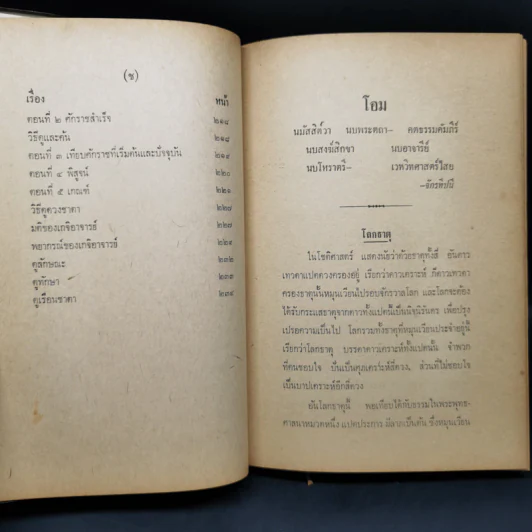 (ช)
เรื่อง หน้า
ตอนที่ ๒ ศักราชสำเร็จ ๒๑๘
วิธีคูณและค้น ๒๑๘
ตอนที่ ๓ เทียบศักราชที่เริ่มต้นและปัจจุบัน ๒๑๙
ตอนที่ ๔ พิสูจน์ ๒๒๐
ตอนที่ ๕ เกณฑ์ ๒๒๑
วิธีดูดวงชาตา
มติของเกจิอาจารย์
พยากรณ์ของเกจิอาจารย์
ดูลักษณะ
ดูทักษา
ดูเรือนชาตา
โอม
นมัสสิตวา นบพระตถา– คตธรรมคัมภีร์
นบสงฆ์สิกขา นบอาจารีย์
นบโหราตรี– เวทวิทศาสตร์ไสย
–จักรทีปนี
โลกธาตุ
ในโชติศาสตร์ แสดงนัยว่าด้วยธาตุทั้งสี่ อันดาว
เทวดาแปดดวงครองอยู่ เรียกว่าดาวเคราะห์ ก็ดาวเทวดา
ครองธาตุนั้นหมุนเวียนไปรอบจักรวาลโลก และโลกจะต้อง
ได้รับกระแสธาตุจากดาวทั้งแปดนั้นเป็นนิจนิรันดร เพื่อปรุง
แปรความเป็นไป โลกรวมทั้งธาตุที่หมุนเวียนประจำอยู่นี้
เรียกว่าโลกธาตุ บรรดาดาวเคราะห์ทั้งแปดนั้น จำพวก
ที่คนชอบใจ นั้นเป็นศุภเคราะห์สี่ดวง, ส่วนที่ไม่ชอบใจ
เป็นบาปเคราะห์อีกสี่ดวง
อันโลกธาตุนี้ พอเทียบได้กับธรรมในพระพุทธ-
ศาสนาหมวดหนึ่ง แปดประการ มีลาภเป็นต้น ซึ่งหมุนเวียน